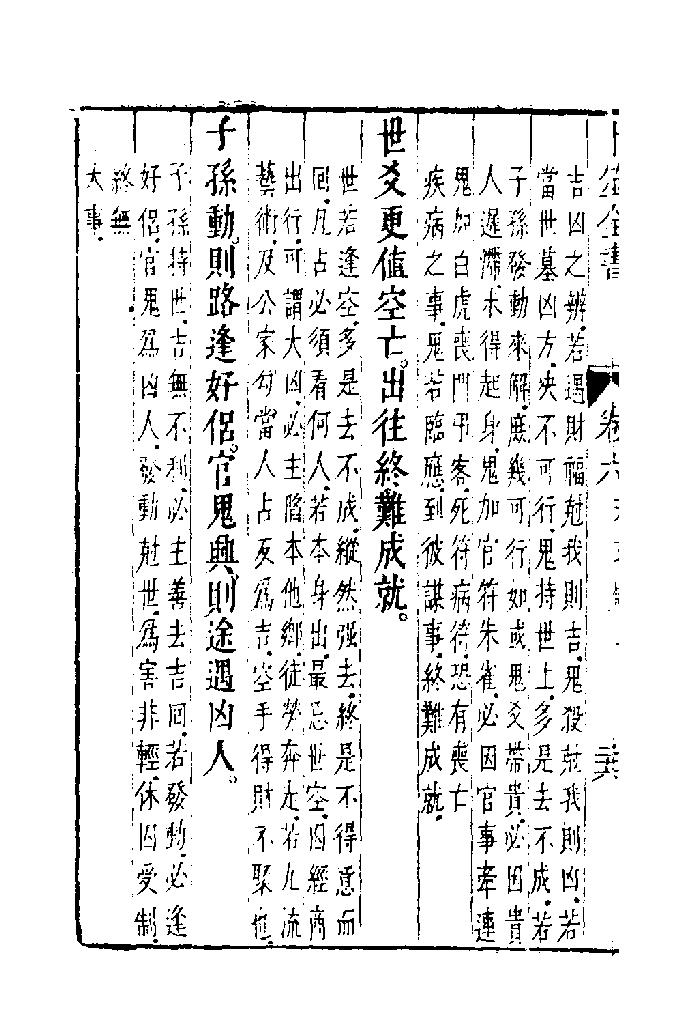 卜筮全書 卷六
吉凶之辨若遇財福尅我則吉鬼殺尅我則凶若
當世墓凶方決不可行鬼持世上多是去不成若
子孫發動來解庶幾可行如或鬼爻帶貴必因貴
人遲滯未得起身鬼加官符朱雀必因官事牽連
鬼如白虎喪門弔客死符病符恐有喪亡
疾病之事鬼若臨應到彼謀事終難成就
世爻更值空亡出往終難成就。
世若逢空多是去不成縱然强去終是不得意而
回凡占必須看何人若本身出最忌世空凶經商
出行可謂大凶必主陷本他鄉徒勞奔走若九流
藝術及公家勾當人占反爲吉空手得財不聚也
子孫動則路逢好侶官鬼興則途遇凶人。
子孫持世吉無不利必主善去吉回若發動必逢
好侶官鬼爲凶人發動尅世爲害非輕休囚受制
終無
大事